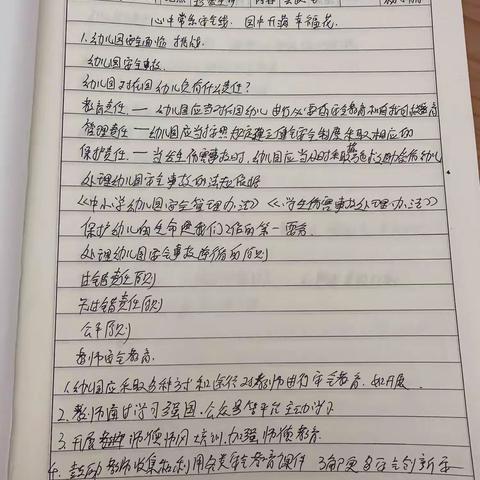 心中常系安全绳 园中开满幸福花
1.幼儿园安全面临挑战
幼儿园安全事故
幼儿园对在园幼儿负有什么责任?
教育责任 — 幼儿园应当对在园幼儿进行必要的安全教育和自我
管理责任 — 幼儿园应当按照规定建立健全安全制度采取相应的
保护责任 — 当发生伤害事故时,幼儿园应当及时采取措施救助受伤幼儿
处理幼儿园安全事故的法规依据
《中小学幼儿园安全管理办法》《学生伤害事故处理办法》
保护幼儿的生命是我们工作的第一要务
处理幼儿园安全事故遵循的原则
过错责任原则
无过错责任原则
公平原则
教师安全教育
1.幼儿园应采取多种方式和途径对教师进行安全教育 如开展
2.教师通过学习强国、公众号等平台主动学习
3.开展教师师德师风培训,加强师德教育
4.鼓励教师收集和利用各类安全教育课件